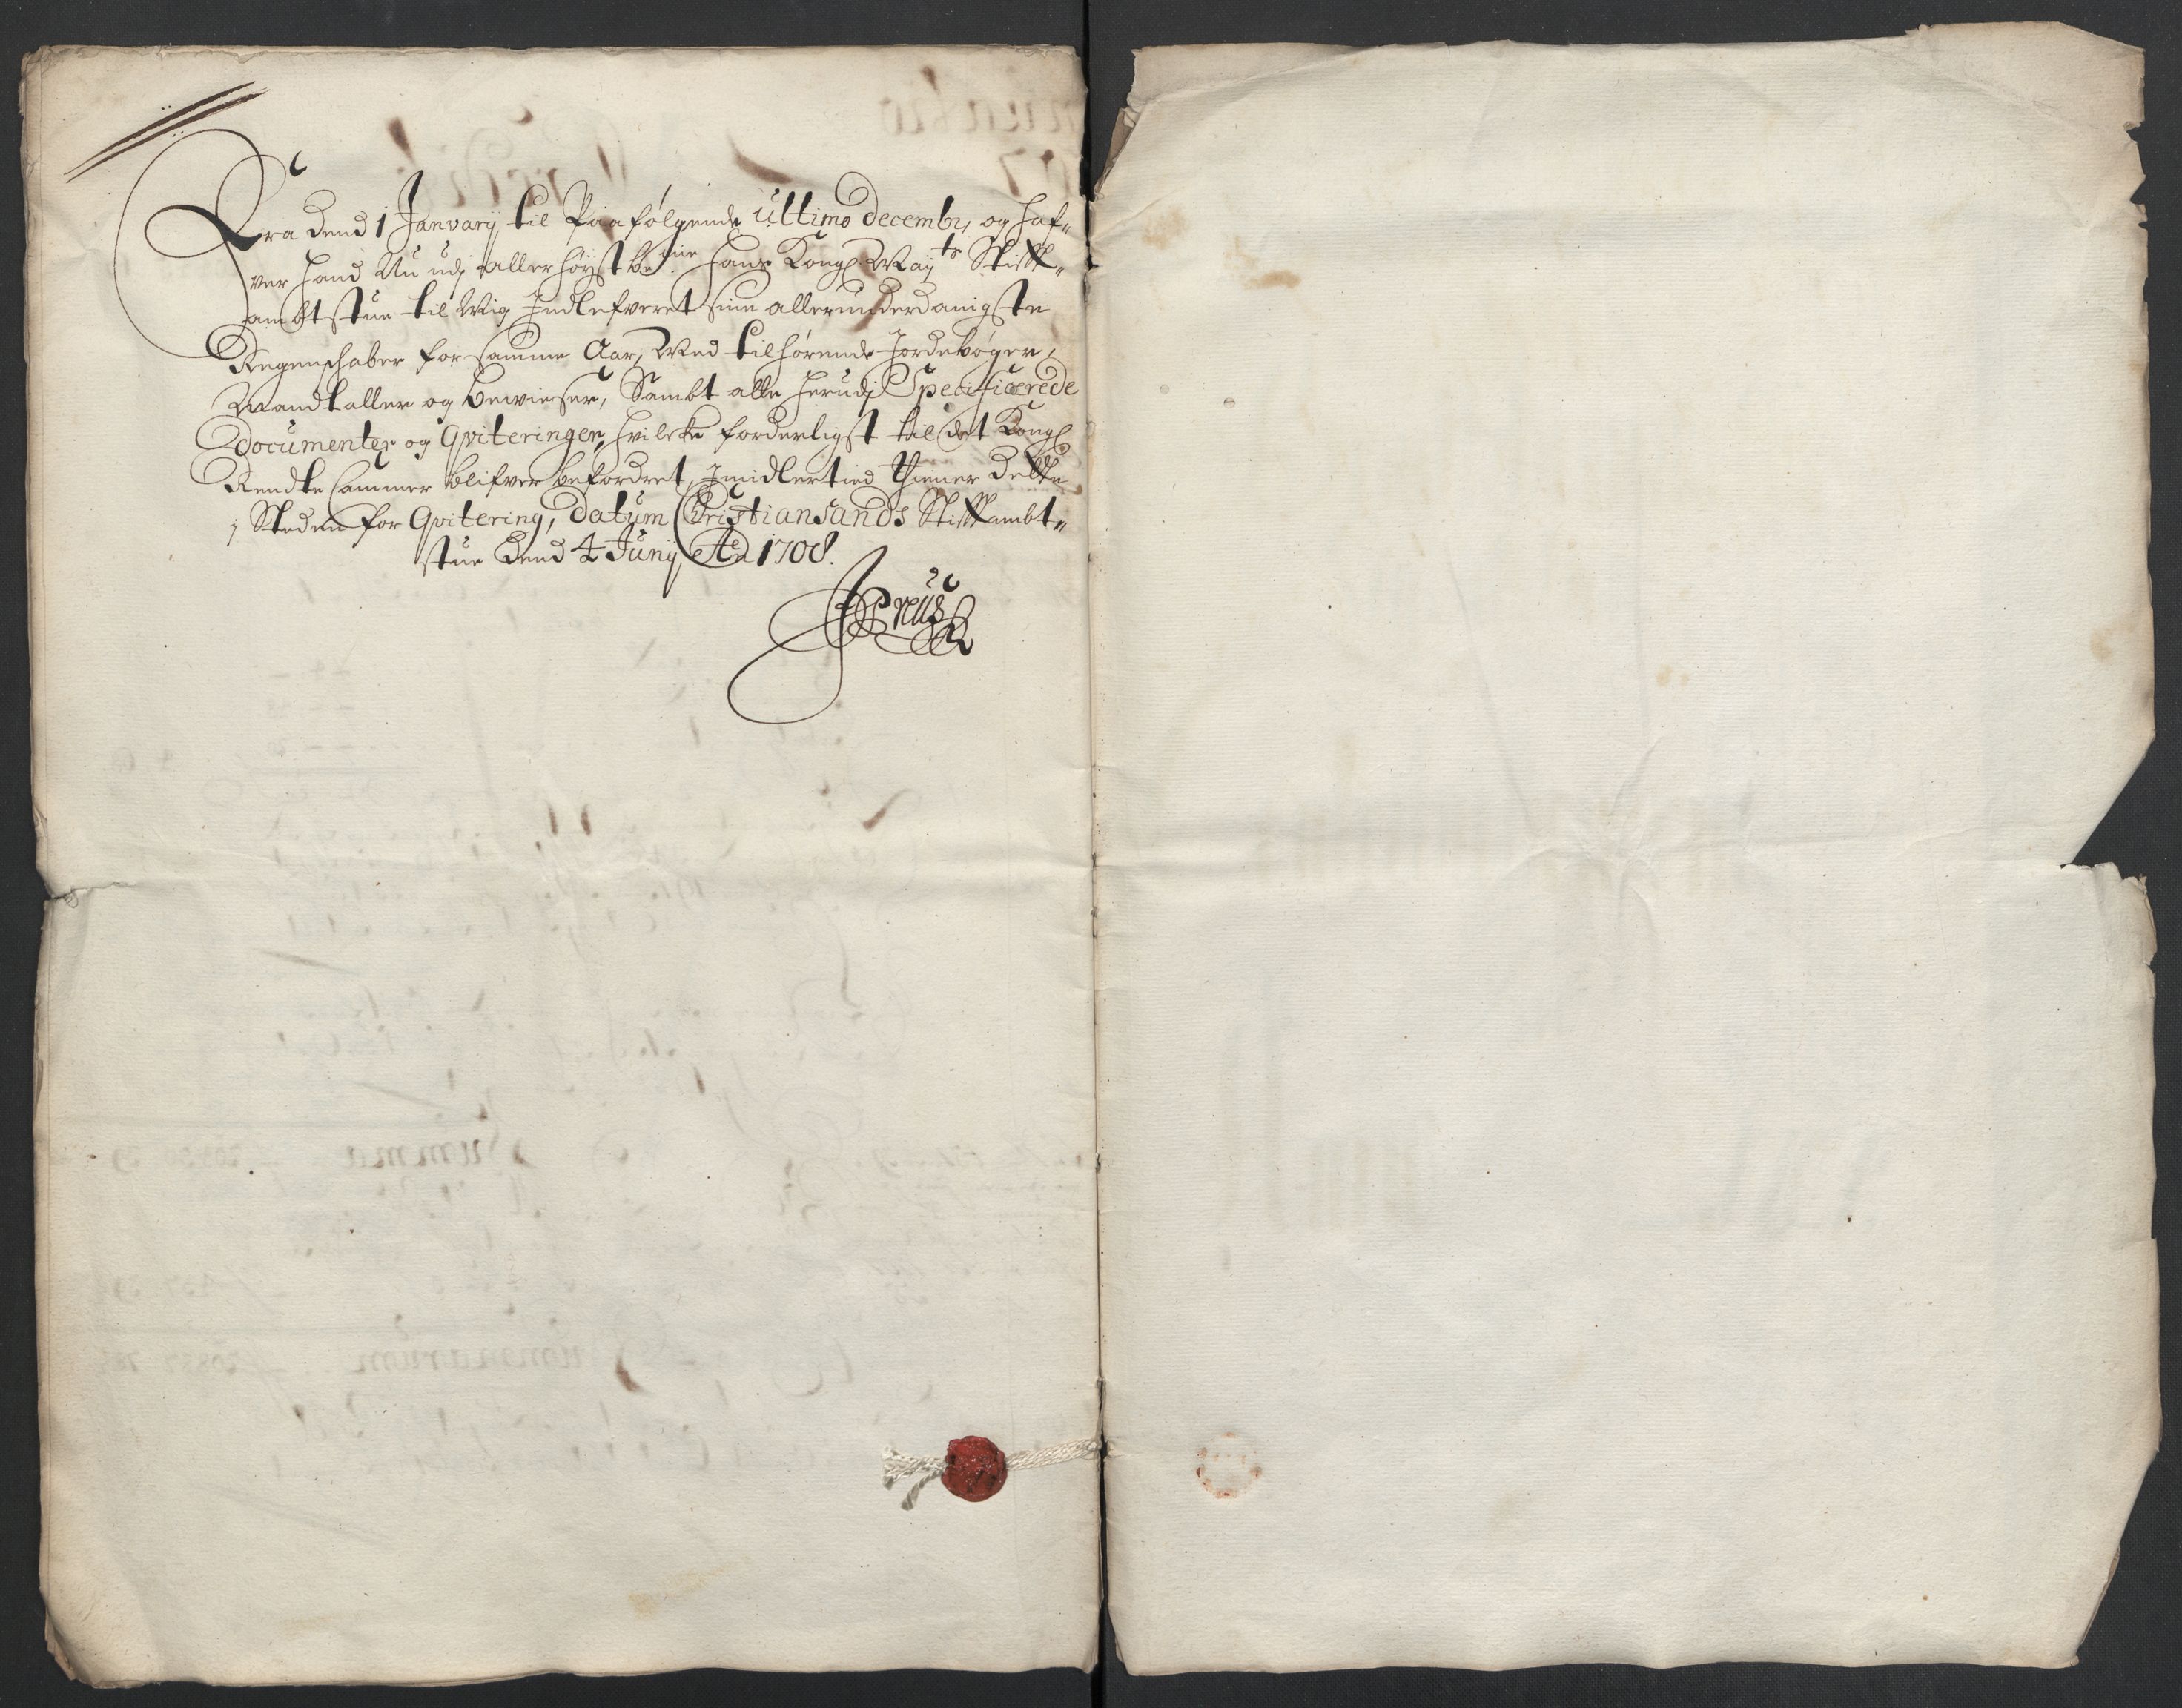 Fra Dend 1 Janvarij til Paafølgende Ultimo decembr, og haf-
ver hand Nu udj allerhøyst be.ᵐᵗᵉ hans Kongl Maytˢ Stift-
ambtstue til Mig Indlefveret sine allerunderdanigste
Regenschaber for samme Aar, Med tilhørende Jordebøger,
Mandtaller og bewieser, Sambt alle herudj Specificerede
documenter og Qviteringer, hvilcke forderligst til det Kongl
Rendte Cammer blifver befordret, Imidlertid thiener dette
j Steden for Qvitering, Datum Christiansands Stiftambt-
stue dend 4 Junij Ao 1708.